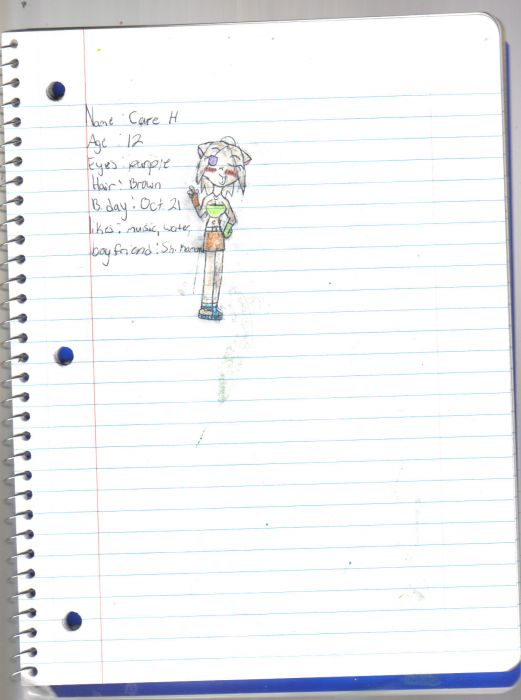 Name : Care H
Age : 12
Eyes : purple
Hair : Brown
B.day : Oct 21
likes : music, water,
boyfriend :